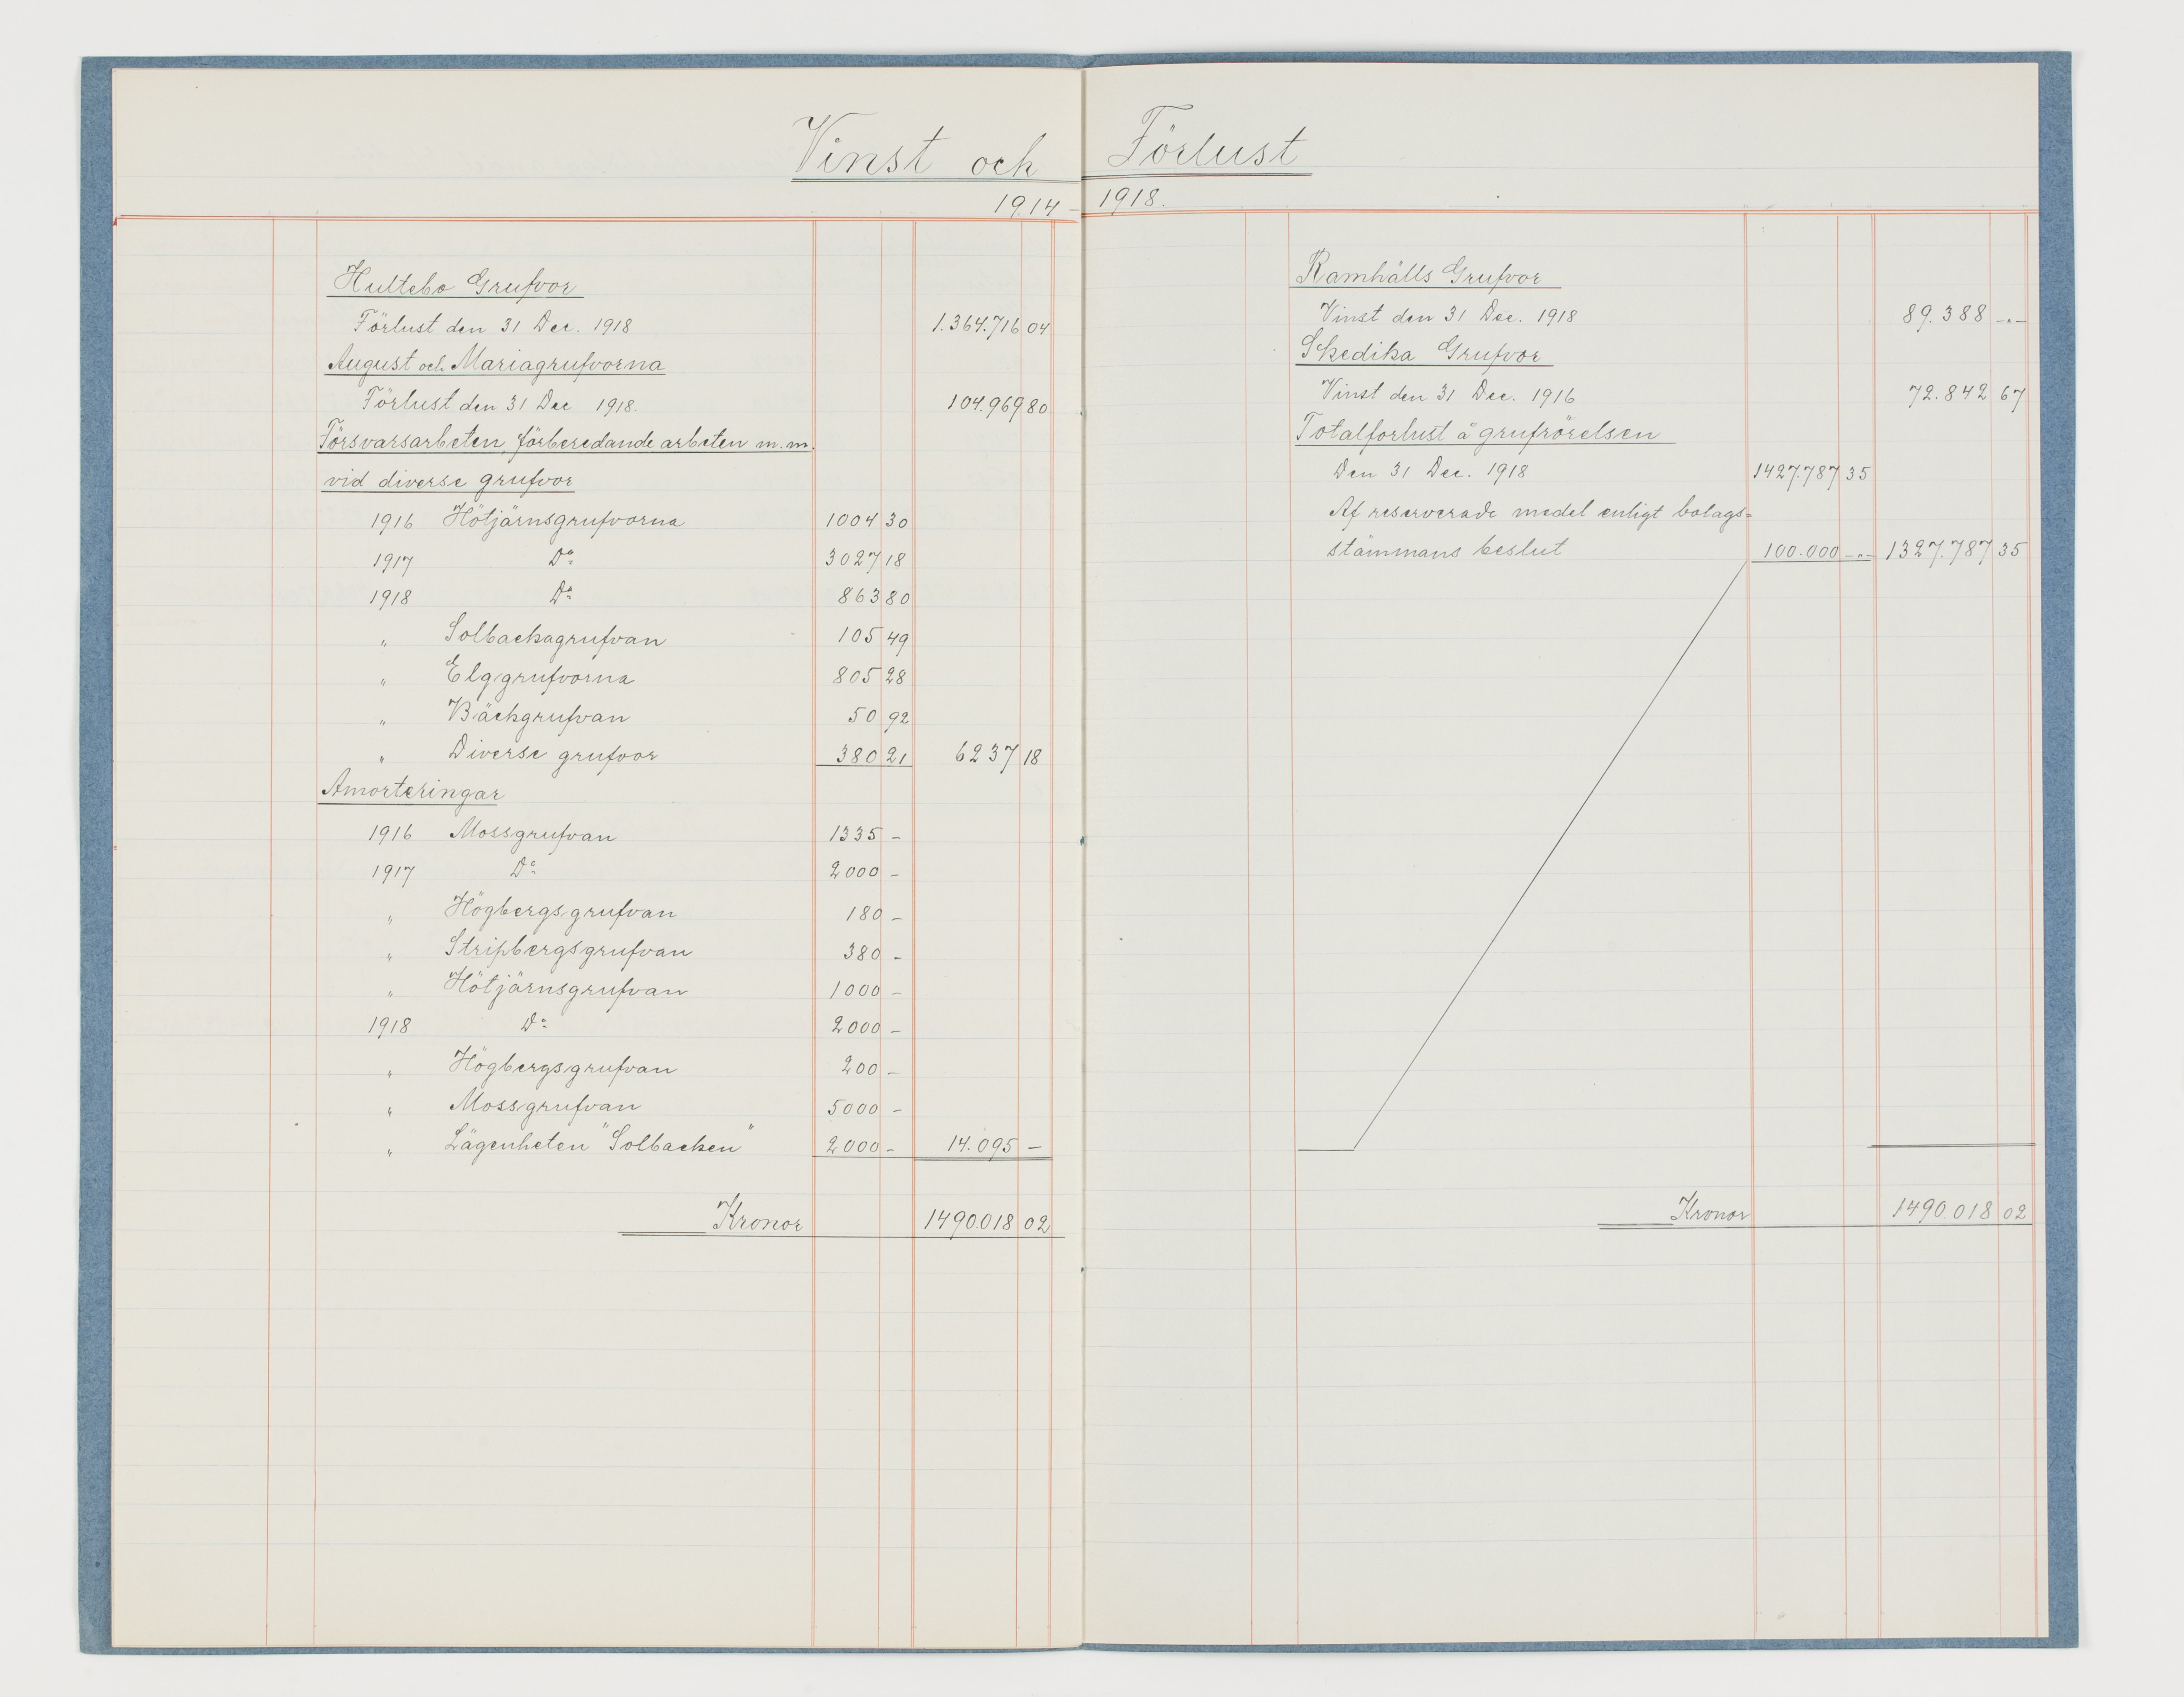 Vinst och Förlust
1914 - 1918.
Hultebo Grufvor
Förlust den 31 Dec. 1918 1.364.716 04
August och Mariagrufvorna
Förlust den 31 Dec 1918. 104.969 80
Försvarsarbeten, förberedande arbeten m.m.
vid diverse grufvor
1916 Hötjärnsgrufvorna 1004 30
1917 Do 3027 18
1918 Do 863 80
" Solbackagrufvan 105 49
" Elggrufvorna 805 28
" Bäckgrufvan 50 92
" Diverse grufvor 380 21 6237 18
Amorteringar
1916 Mossgrufvan 1335 -
1917 Do 2000 -
" Högbergsgrufvan 180 -
" Stripbergsgrufvan 380 -
" Hötjärnsgrufvan 1000 -
1918 Do 2000 -
" Högbergsgrufvan 200 -
" Mossgrufvan 5000 -
" Lägenheten "Solbacken" 2000 - 14.095 -
Kronor 1490.018 02
Ramhälls Grufvor
Vinst den 31 Dec. 1918 89.388 -"-
Skedika Grufvor
Vinst den 31 Dec. 1916 72.842 67
Totalförlust å grufrörelsen
Den 31 Dec. 1918 1427.787 35
Af reserverade medel enligt bolags=
stämmans beslut 100.000 -"- 1327.787 35
Kronor 1490.018 02